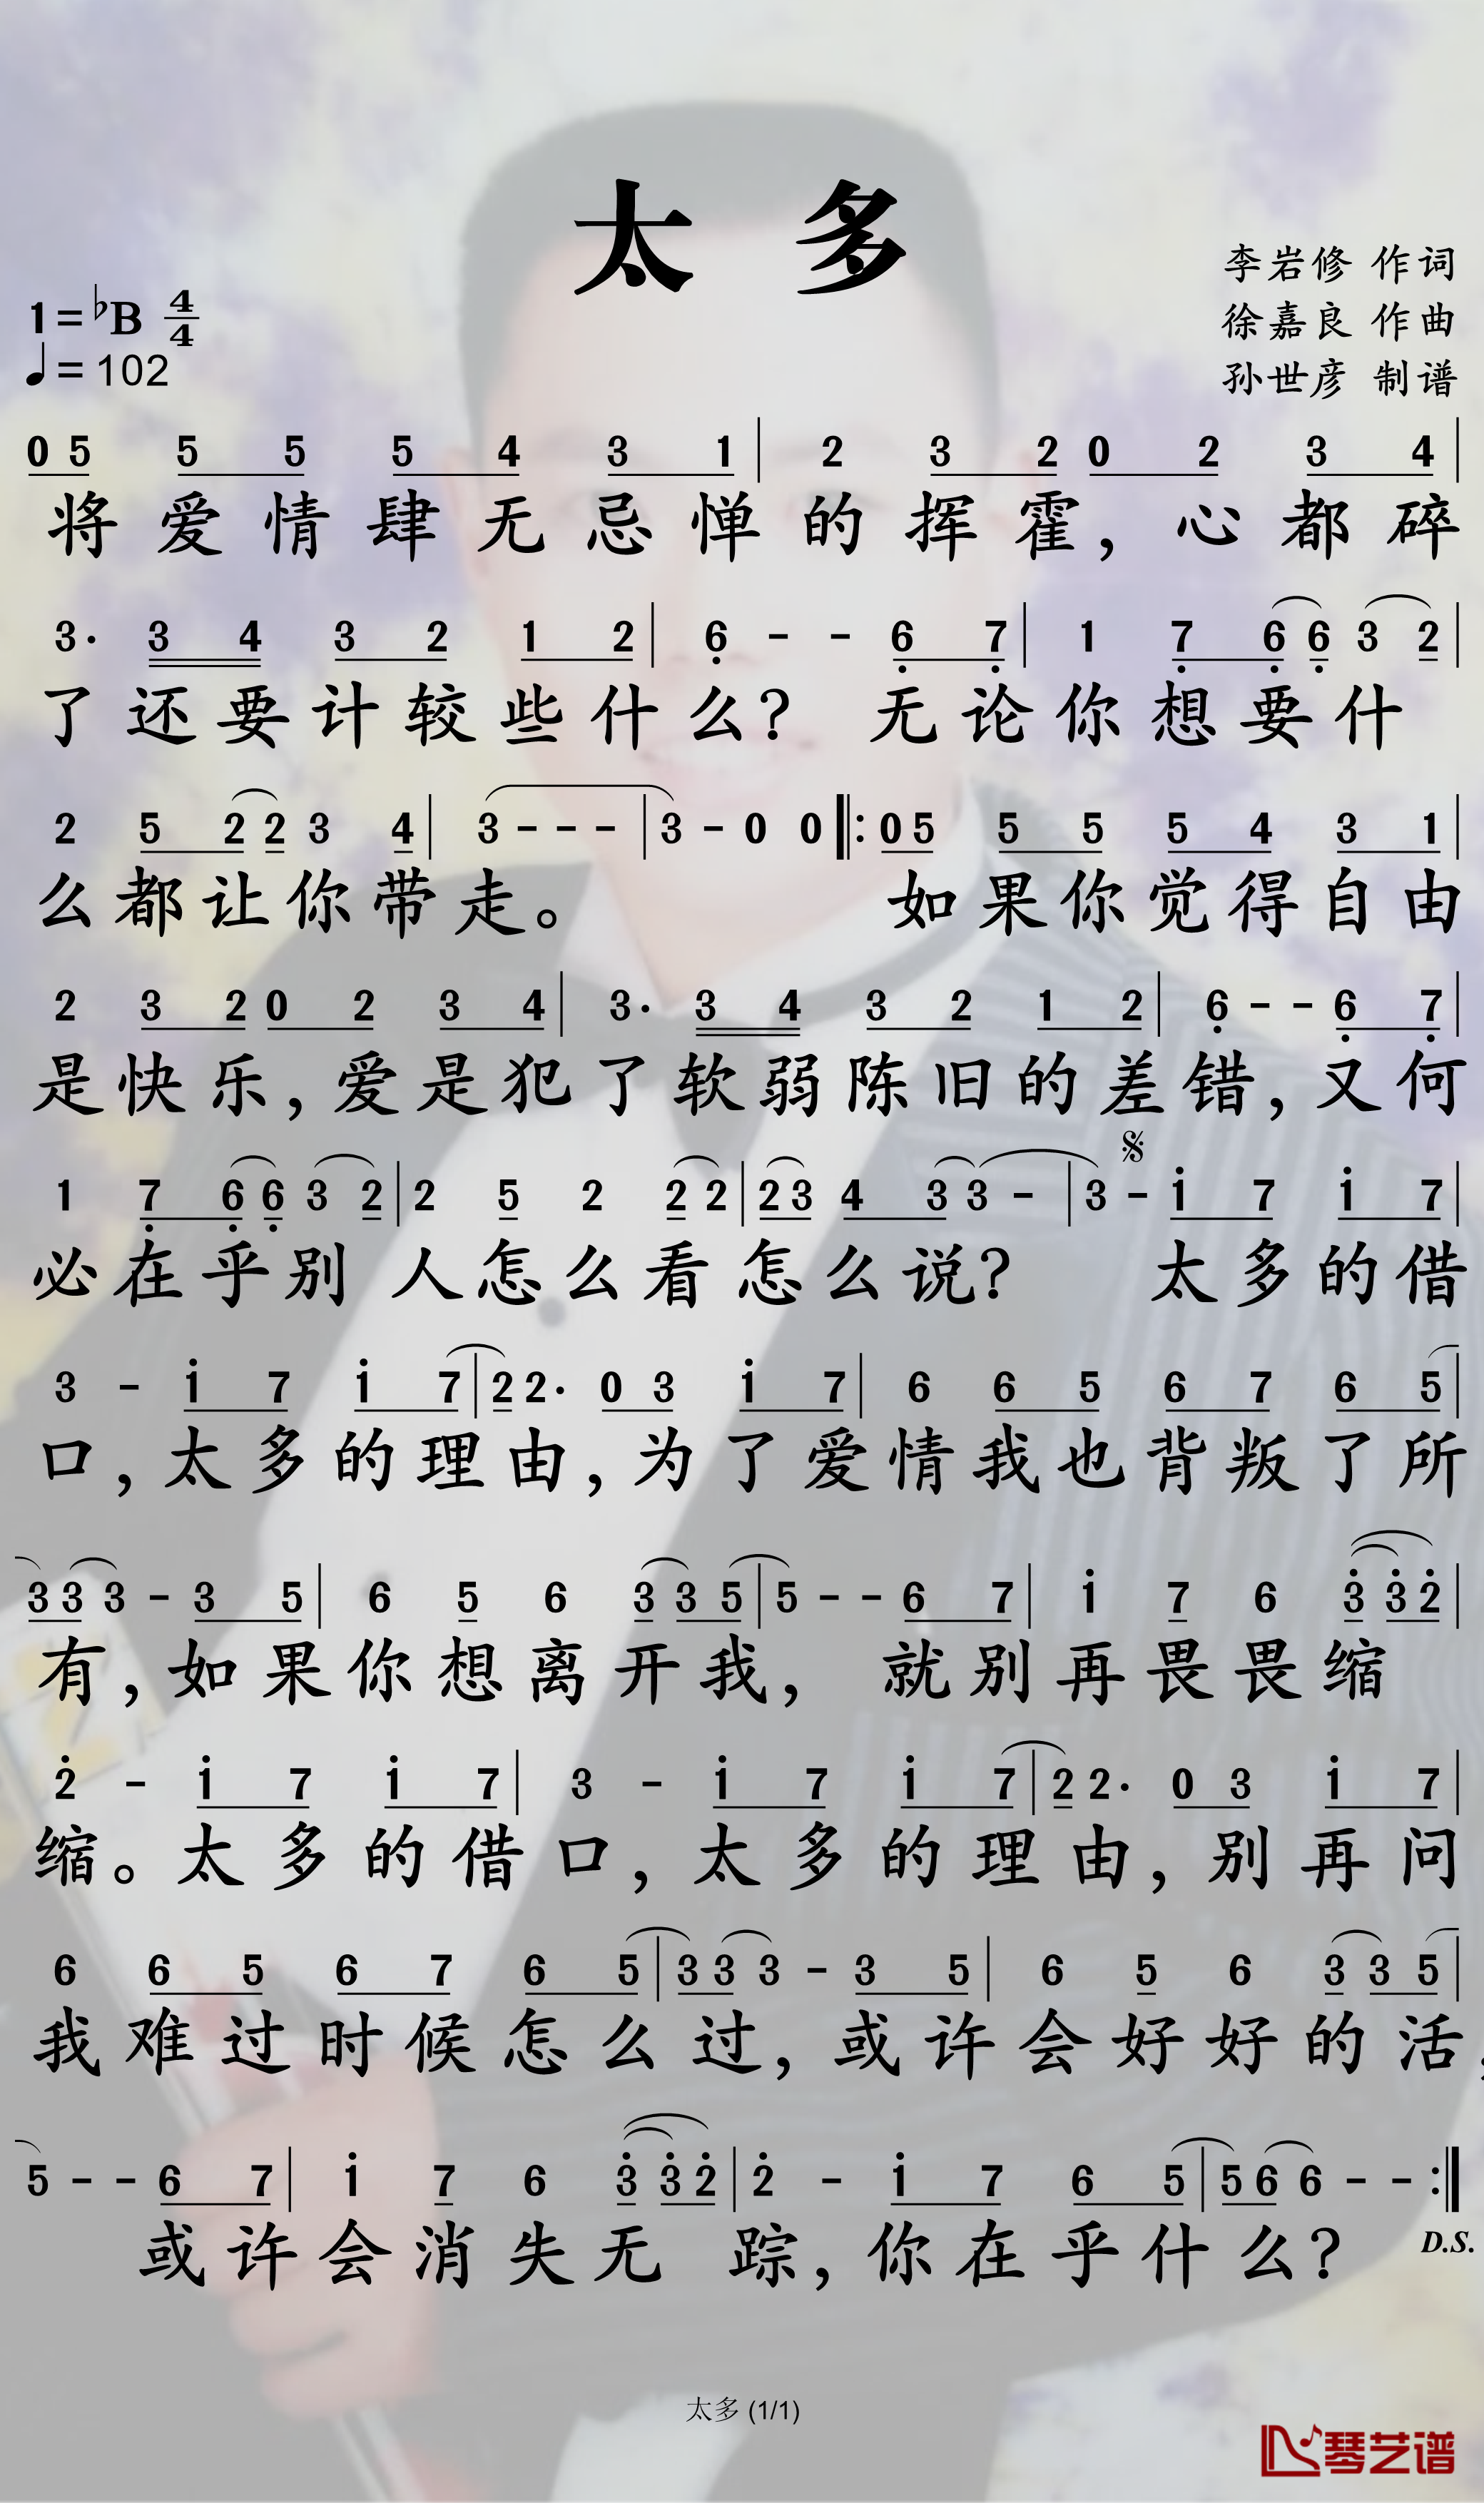 太 多
李岩修 作词
1=♭B 4/4
徐嘉良 作曲
♩= 102
孙世彦 制谱
0 5 5 5 5 4 3 1 | 2 3 2 0 2 3 4 |
将爱情肆无忌惮的挥霍，心都碎
3· 3 4 3 2 1 2 | 6̣ - - 6̣ 7̣ | 1 7̣ 6̣ 6̣ 3 2 |
了还要计较些什么？ 无论你想要什
2 5 2 2 3 4 | 3 - - - | 3 - 0 0 ‖: 0 5 5 5 5 4 3 1 |
么都让你带走。 如果你觉得自由
2 3 2 0 2 3 4 | 3· 3 4 3 2 1 2 | 6̣ - - 6̣ 7̣ |
是快乐，爱是犯了软弱陈旧的差错，又何
𝄋
1 7̣ 6̣ 6̣ 3 2 | 2 5 2 2 2 | 2 3 4 3 3 - | 3 - i 7 i 7 |
必在乎别 人怎么看怎么说？ 太多的借
3 - i 7 i 7 | 2 2· 0 3 i 7 | 6 6 5 6 7 6 5 |
口，太多的理由，为了爱情我也背叛了所
3 3 3 - 3 5 | 6 5 6 3 3 5 | 5 - - 6 7 | i 7 6 3̇ 3̇ 2̇ |
有，如果你想离开我， 就别再畏畏缩
2̇ - i 7 i 7 | 3 - i 7 i 7 | 2 2· 0 3 i 7 |
缩。太多的借口，太多的理由，别再问
6 6 5 6 7 6 5 | 3 3 3 - 3 5 | 6 5 6 3 3 5 |
我难过时候怎么过，或许会好好的活，
5 - - 6 7 | i 7 6 3̇ 3̇ 2̇ | 2̇ - i 7 6 5 | 5 6 6 - - :‖
或许会消失无 踪，你在乎什么？ D.S.
太多 (1/1)
琴艺谱